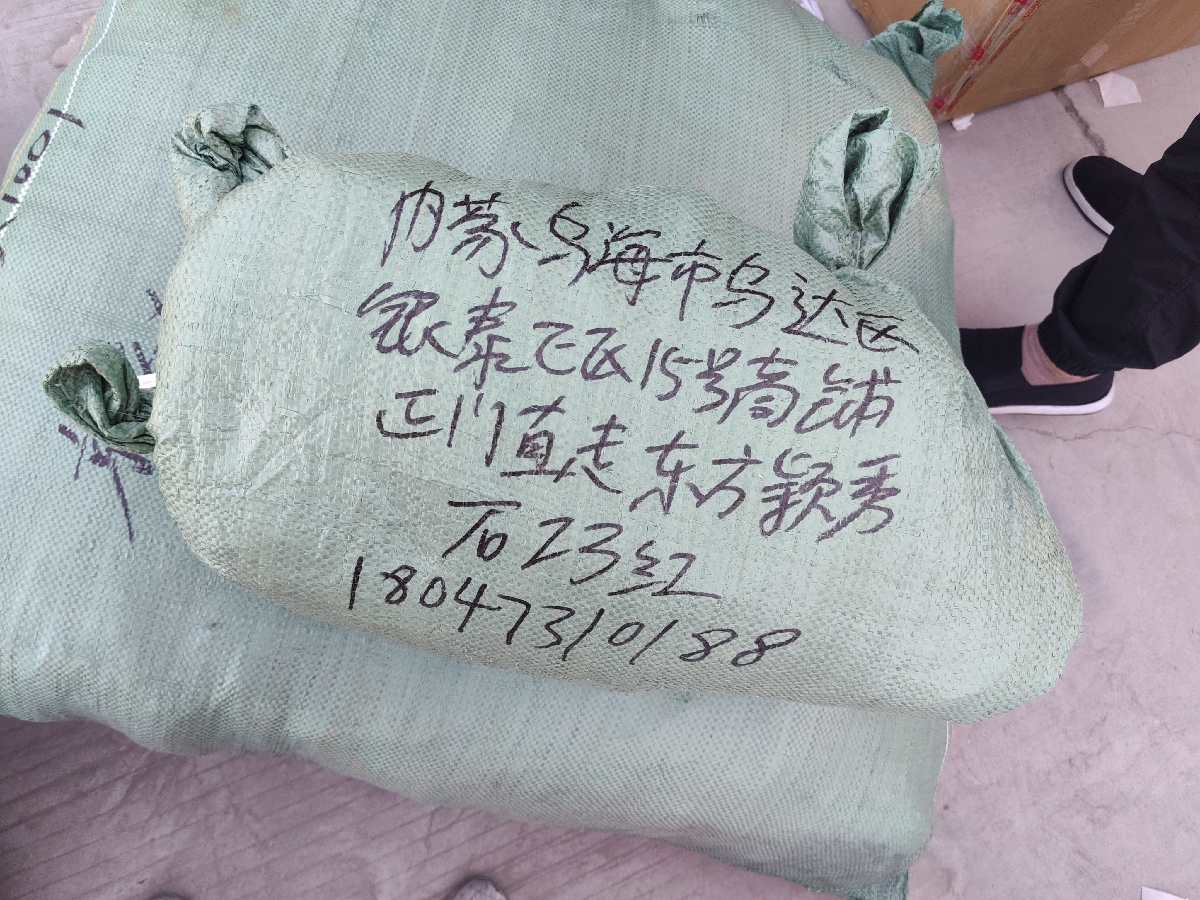 内蒙乌海市乌达区
银泰飞区15号商铺
正门直走东方颖秀
石23红
18047310188
1801